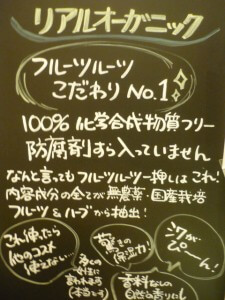 リアルオーガニック
フルーツルーツ
こだわり No.1
100% 化学合成物質フリー
防腐剤すら入っていません
なんと言ってもフルーツルーツ一押しはこれ!
内容成分の全てが無農薬・国産栽培
フルーツ&ハーブから抽出!
これ使ったら
他のコスメ
使えない…
多くの
女性に
言われます
(本当です)
驚きの
保湿力!
香料なしの
自然な香りにし
ツヤが
ぴーん!